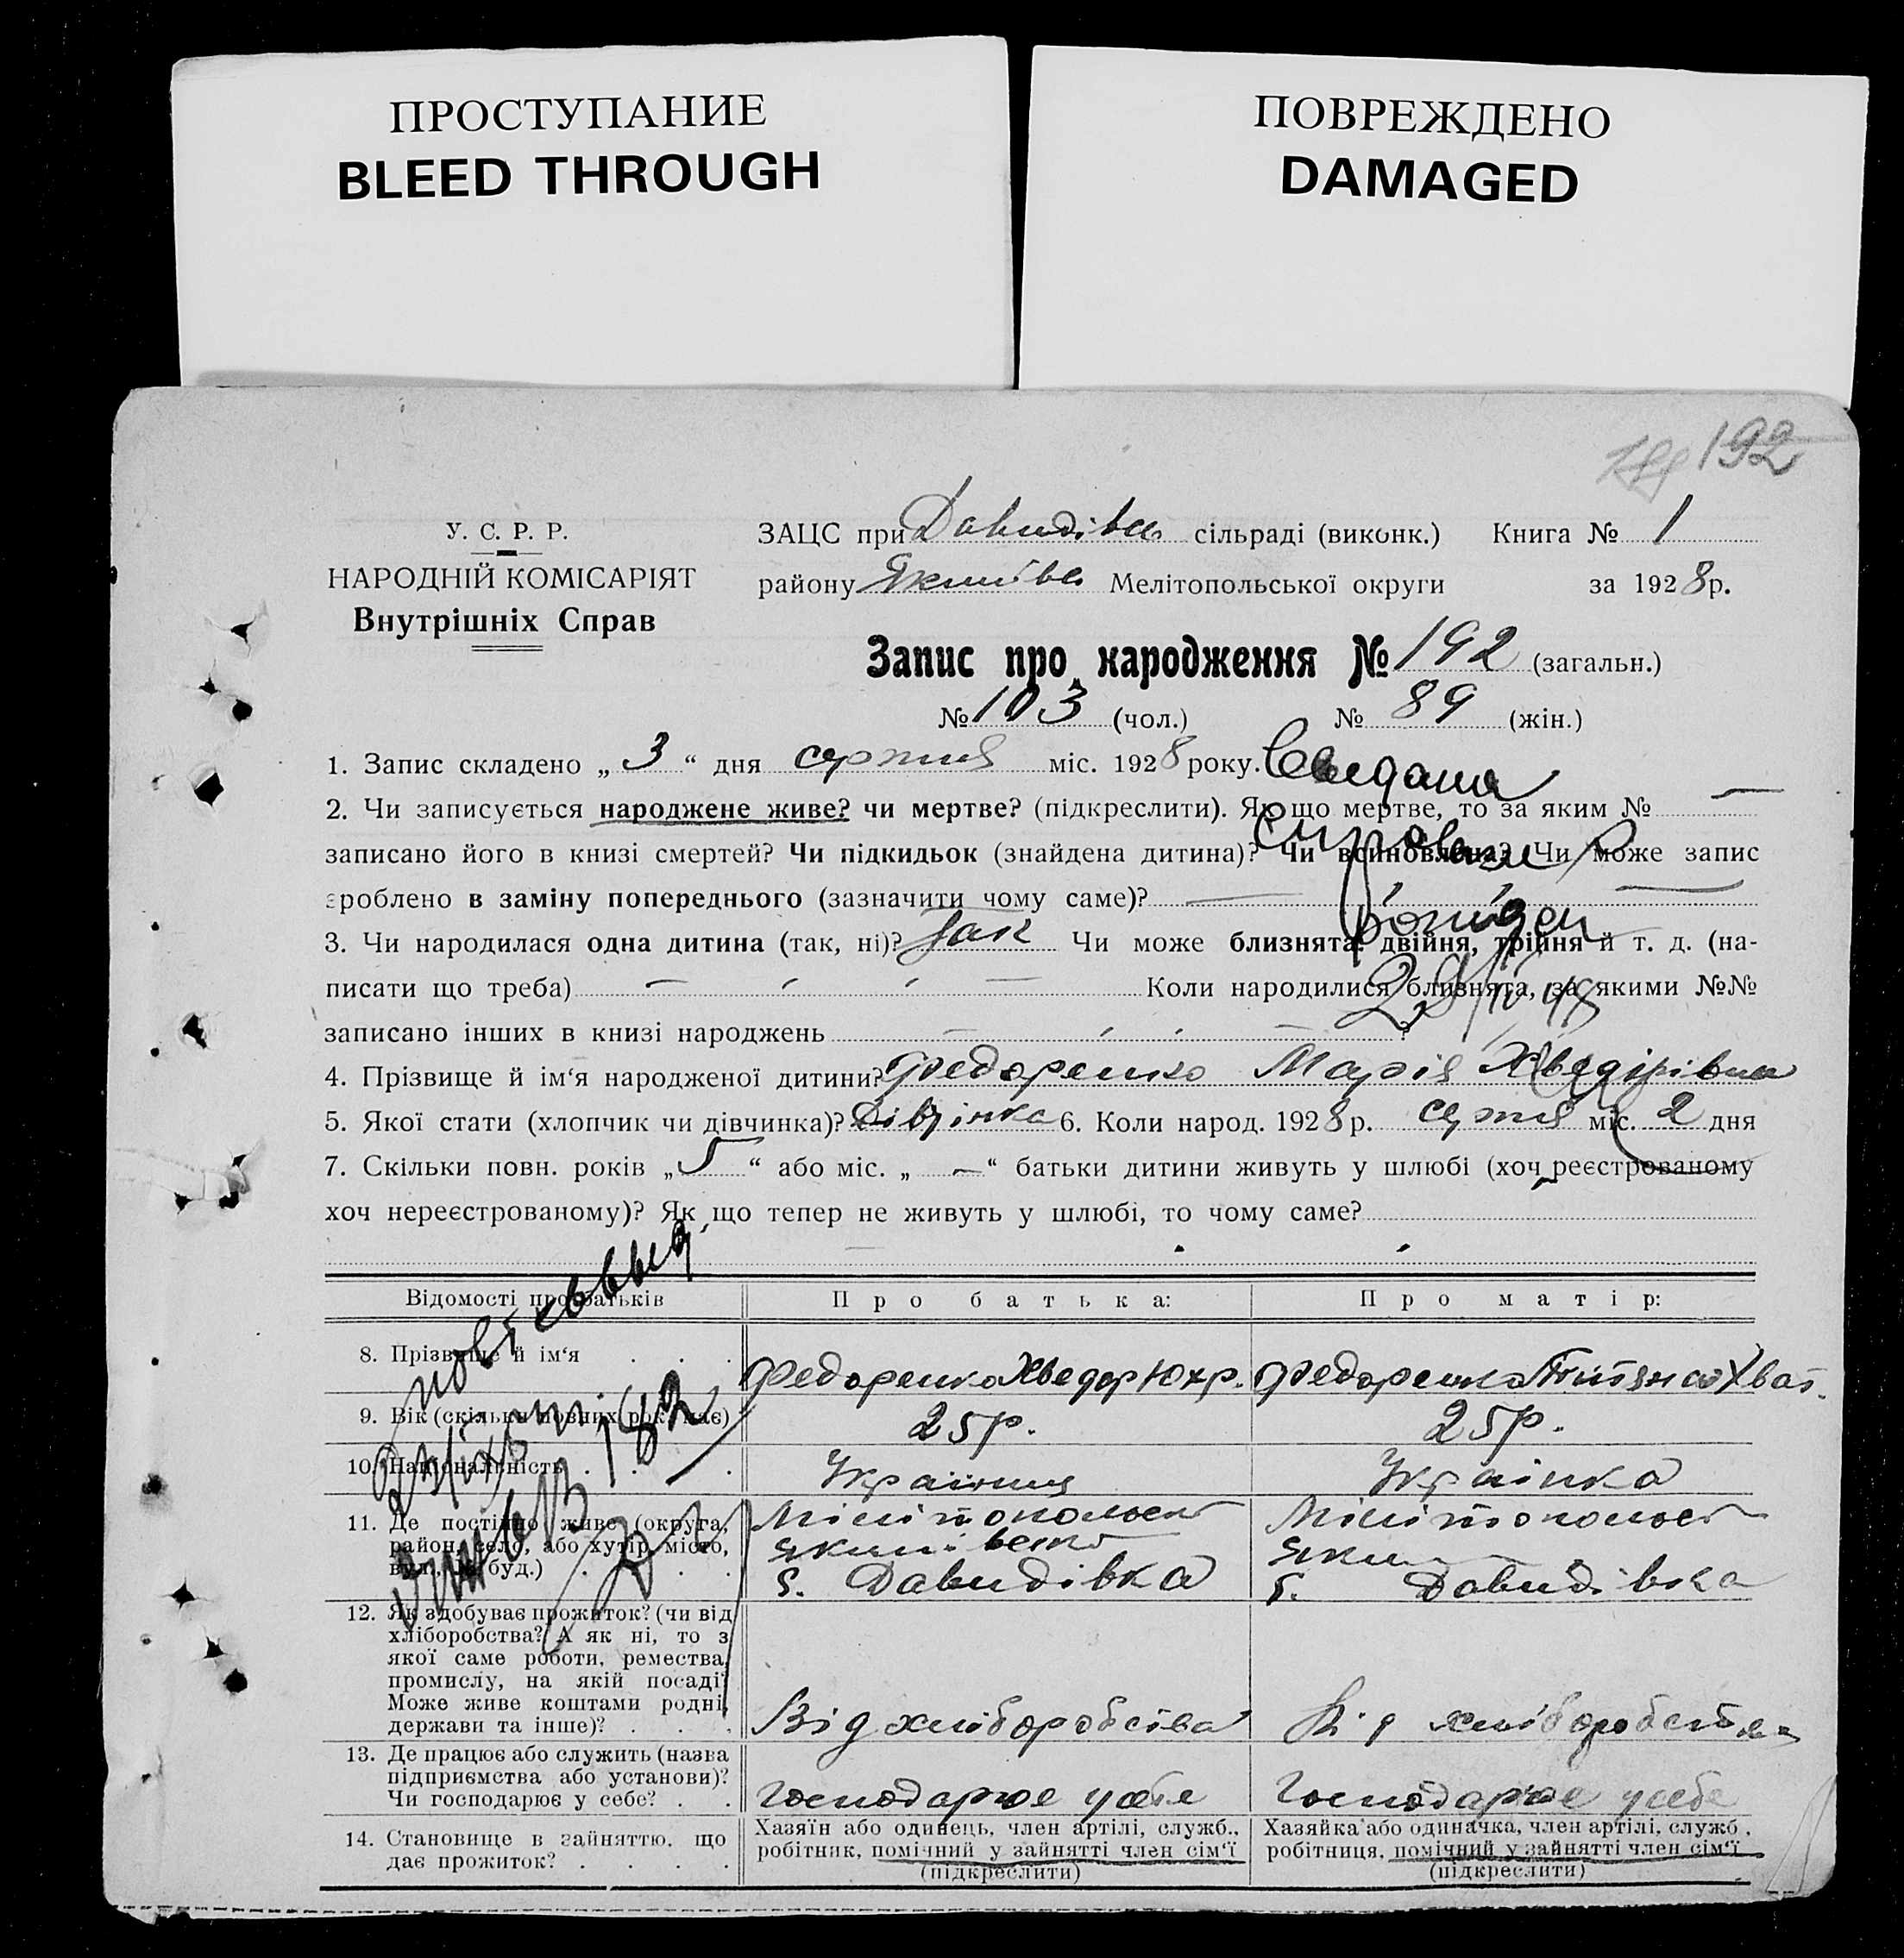 ПРОСТУПАНИЕ
BLEED THROUGH
ПОВРЕЖДЕНО
DAMAGED
192
У. С. Р. Р.
НАРОДНІЙ КОМІСАРІЯТ
Внутрішніх Справ
ЗАЦС при Давидівц сільраді (виконк.) Книга № 1
району Якимівс Мелітопольської округи за 1928 р.
Запис про народження № 192 (загальн.)
№ 103 (чол.) № 89 (жін.)
1. Запис складено „ 3 “ дня серпня міс. 1928 року.
2. Чи записується народжене живе? чи мертве? (підкреслити). Як що мертве, то за яким № —
записано його в книзі смертей? Чи підкидьок (знайдена дитина)? Чи всиновлена? Чи може запис
зроблено в заміну попереднього (зазначити чому саме)? —
3. Чи народилася одна дитина (так, ні)? Так Чи може близнята: двійня, трійня й т. д. (на-
писати що треба) — Коли народилися близнята, за якими №№
записано інших в книзі народжень — ?
4. Прізвище й ім‘я народженої дитини? Федоренко Марія Хведірівна
5. Якої стати (хлопчик чи дівчинка)? Дівчінка 6. Коли народ. 1928 р. серпня міс. 2 дня
7. Скільки повн. років „ 5 “ або міс. „ — “ батьки дитини живуть у шлюбі (хоч реєстрованому
хоч нереєстрованому)? Як що тепер не живуть у шлюбі, то чому саме?
Відомості про батьків Про батька: Про матір:
8. Прізвище й ім‘я . . . Федоренко Хведор Юхр. Федоренко Хват.
9. Вік (скільки повних рок. має) 25 р. 25 р.
10. Національність . . . Українец Українка
11. Де постійно живе (округа,
район, село, або хутір, місто,
вул., № буд.) . . . .
Мілітопольськ
Якимівськ
с. Давидівка
Мілітопольськ
Яким
с. Давидівка
12. Як здобуває прожиток? (чи від
хліборобства? А як ні, то з
якої саме роботи, ремества,
промислу, на якій посаді?
Може живе коштами родні,
держави та інше)? . . .
Від хліборобства Від хліборобства
13. Де працює або служить (назва
підприємства або установи)?
Чи господарює у себе? . .
Господарює у себе Господарює у себе
14. Становище в зайняттю, що
дає прожиток? . . . .
Хазяїн або одинець, член артілі, служб.,
робітник, помічний у зайнятті член сім‘ї
(підкреслити)
Хазяйка або одиначка, член артілі, служб.,
робітниця, помічний у зайнятті член сім‘ї
(підкреслити)